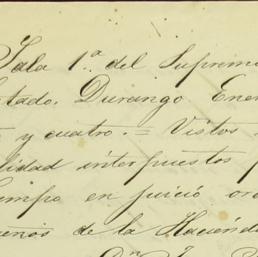 Sala 1.ª del Supremo
Estado. Durango Ener
y cuatro. = Vistos
lidad interpuestos p
tiempo en juicio or
de la Haciend